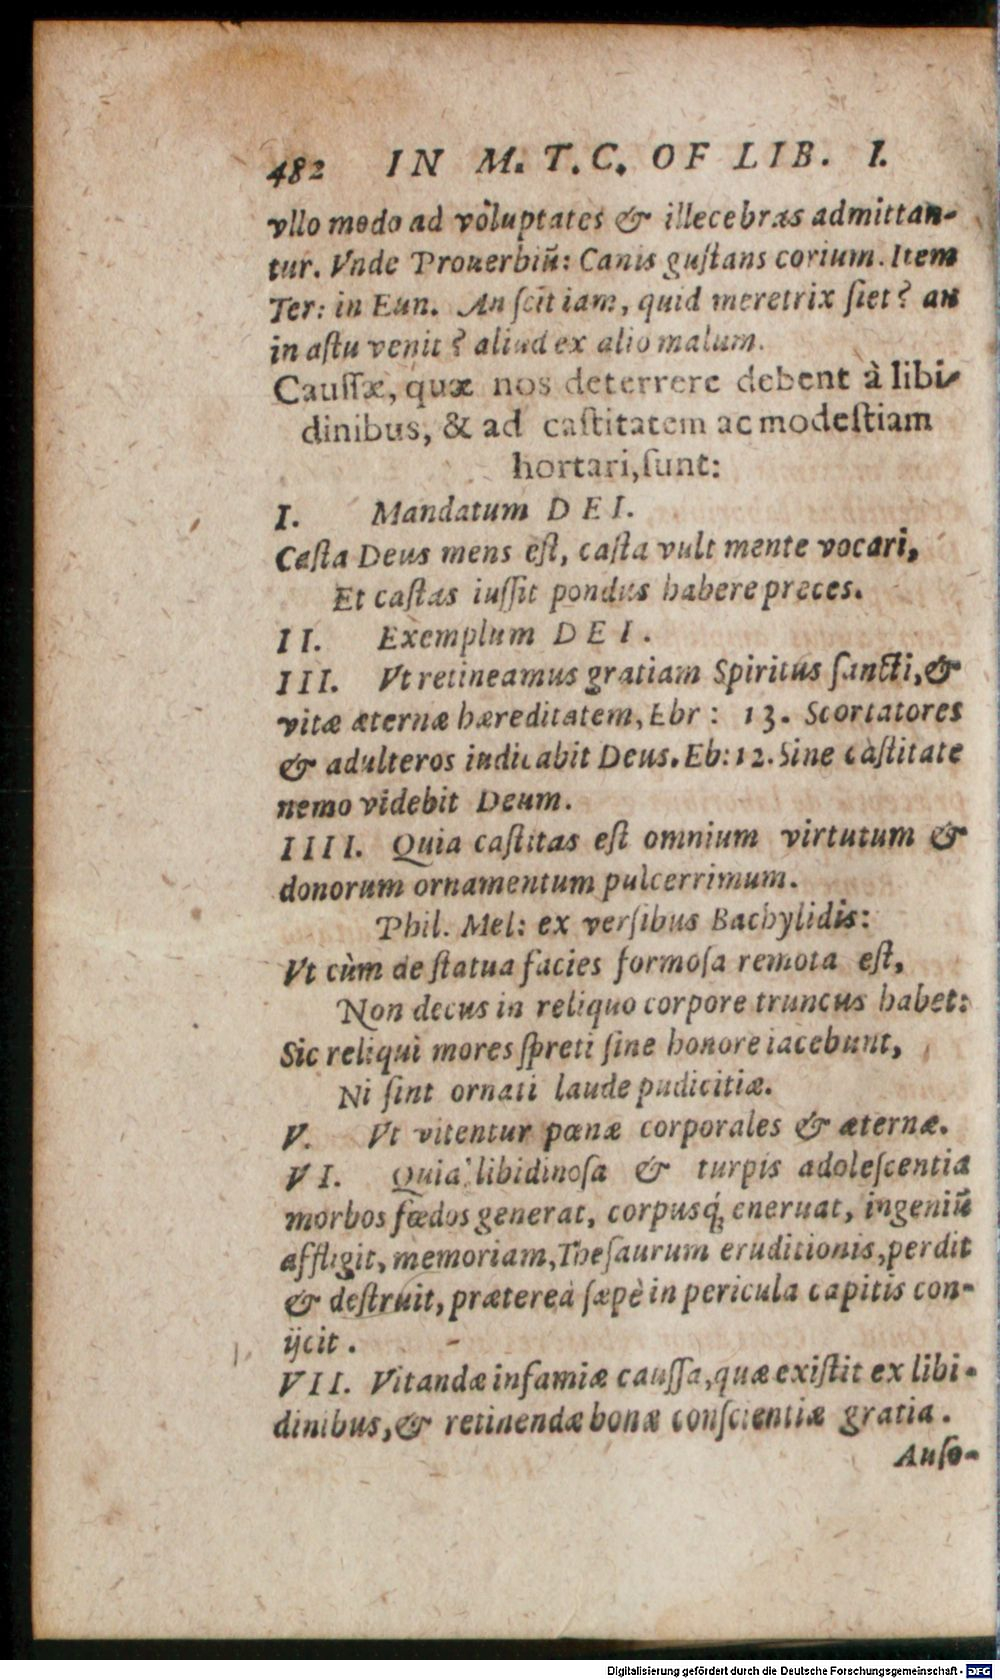 482 IN M. T. C. OF LIB. I.
vllo modo ad voluptates & illecebras admittan-
tur. Vnde Prouerbiū: Canis guſtans corium. Item
Ter: in Eun. An ſcit iam, quid meretrix ſiet? an
in aſtu venit? aliud ex alio malum.
Cauſſæ, quæ nos deterrere debent à libi-
dinibus, & ad caſtitatem ac modeſtiam
hortari, ſunt:
I. Mandatum DEI.
Caſta Deus mens eſt, caſta vult mente vocari,
Et caſtas iuſſit pondus habere preces.
II. Exemplum DEI.
III. Vt retineamus gratiam Spiritus ſancti, &
vitæ æternæ hæreditatem, Ebr: 13. Scortatores
& adulteros iudicabit Deus. Eb: 12. Sine caſtitate
nemo videbit Deum.
IIII. Quia caſtitas eſt omnium virtutum &
donorum ornamentum pulcerrimum.
Phil. Mel: ex verſibus Bachylidis:
Vt cùm de ſtatua facies formoſa remota eſt,
Non decus in reliquo corpore truncus habet:
Sic reliqui mores ſpreti ſine honore iacebunt,
Ni ſint ornati laude pudicitiæ.
V. Vt vitentur pœnæ corporales & æternæ.
VI. Quia libidinoſa & turpis adoleſcentia
morbos fœdos generat, corpusq́; eneruat, ingeniū
affligit, memoriam, Theſaurum eruditionis, perdit
& deſtruit, præterea ſæpè in pericula capitis con-
ijcit.
VII. Vitandæ infamiæ cauſſa, quæ exiſtit ex libi-
dinibus, & retinendæ bonæ conſcientiæ gratia.
Auſo-
Digitalisierung gefördert durch die Deutsche Forschungsgemeinschaft - DFG